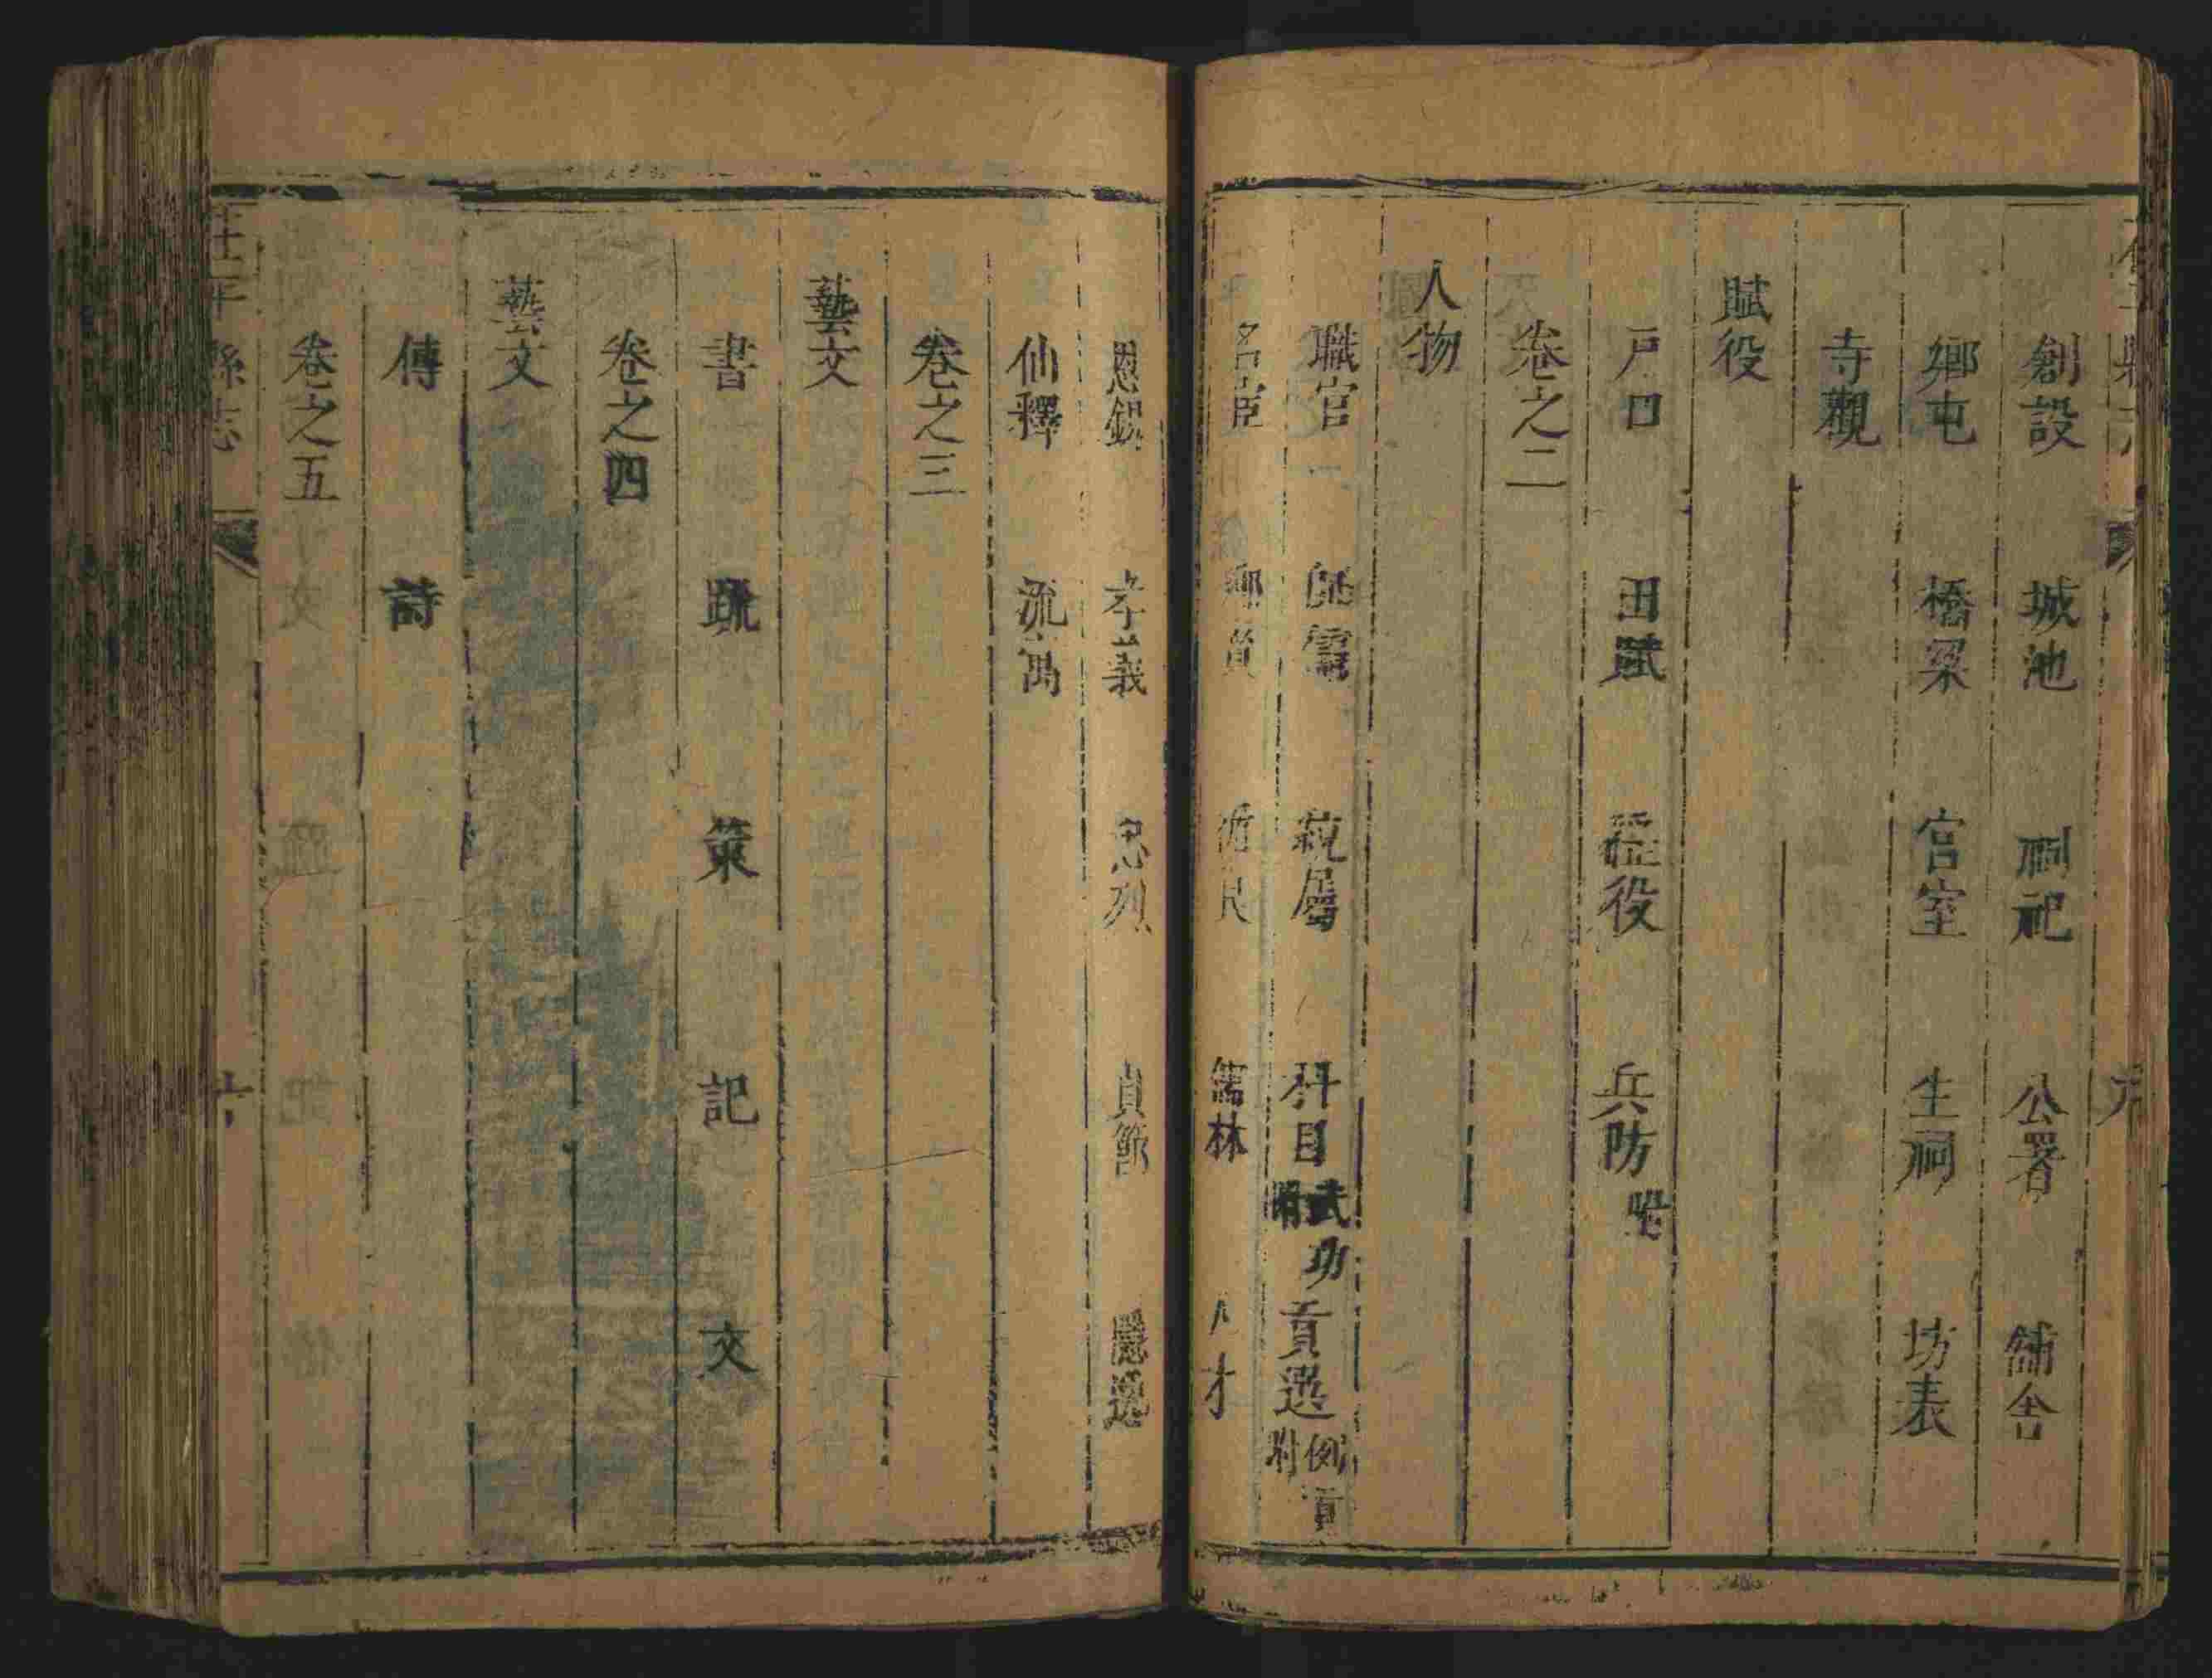 創設 城池 祠祀 公署 舖舍
鄉屯 橋梁 宮室 生祠 坊表
寺觀
賦役
戸口 田賦 徭役 兵防附
卷之二
人物
職官 師儒 義屬 科目武功附 貢選例貢附
名宦 鄉賢 循良 儒林 人才
恩錫 孝義 忠烈 貞節 隱逸
仙釋 流寓
卷之三
藝文
書 疏 策 記 文
卷之四
藝文
傳 詩
卷之五
茌平縣志 六